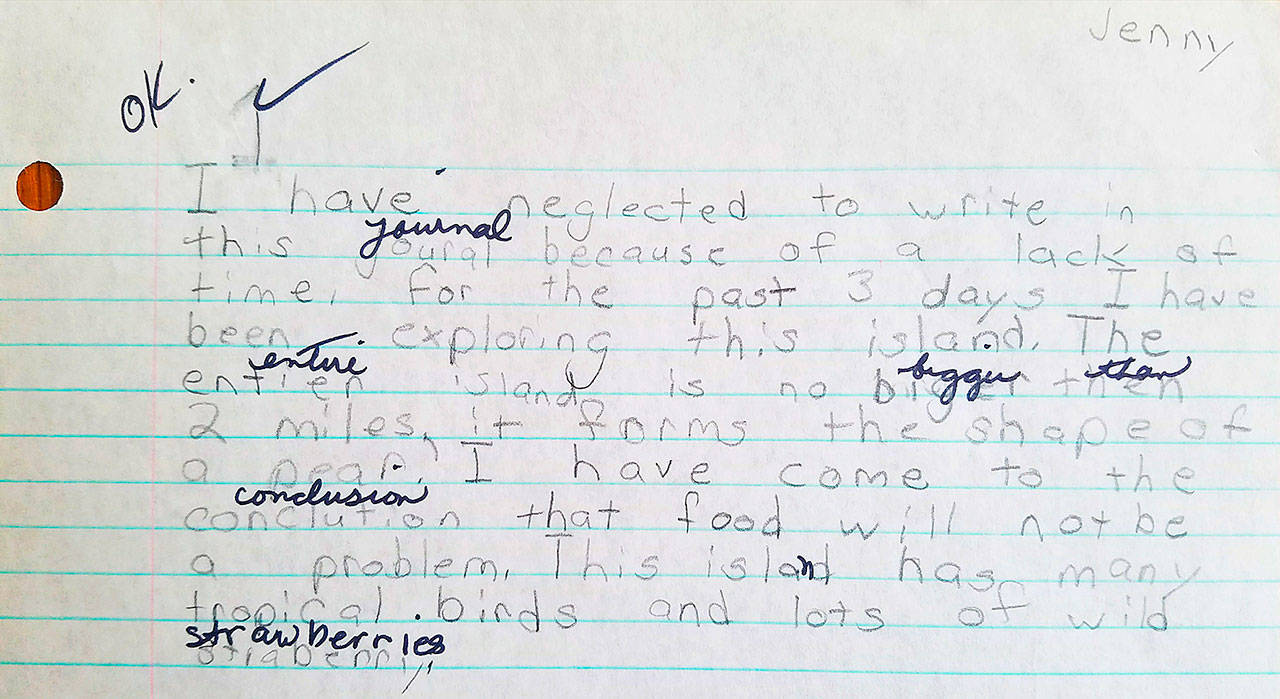 Jenny
OK.
I have neglected to write in
journal
this joural because of a lack of
time, For the past 3 days I have
been exploring this island. The
entire bigger than
entier island is no biger then
2 miles, it forms the shape of
a pear. I have come to the
conclusion
conclution that food will not be
a problem. This island has many
tropical birds and lots of wild
strawberries